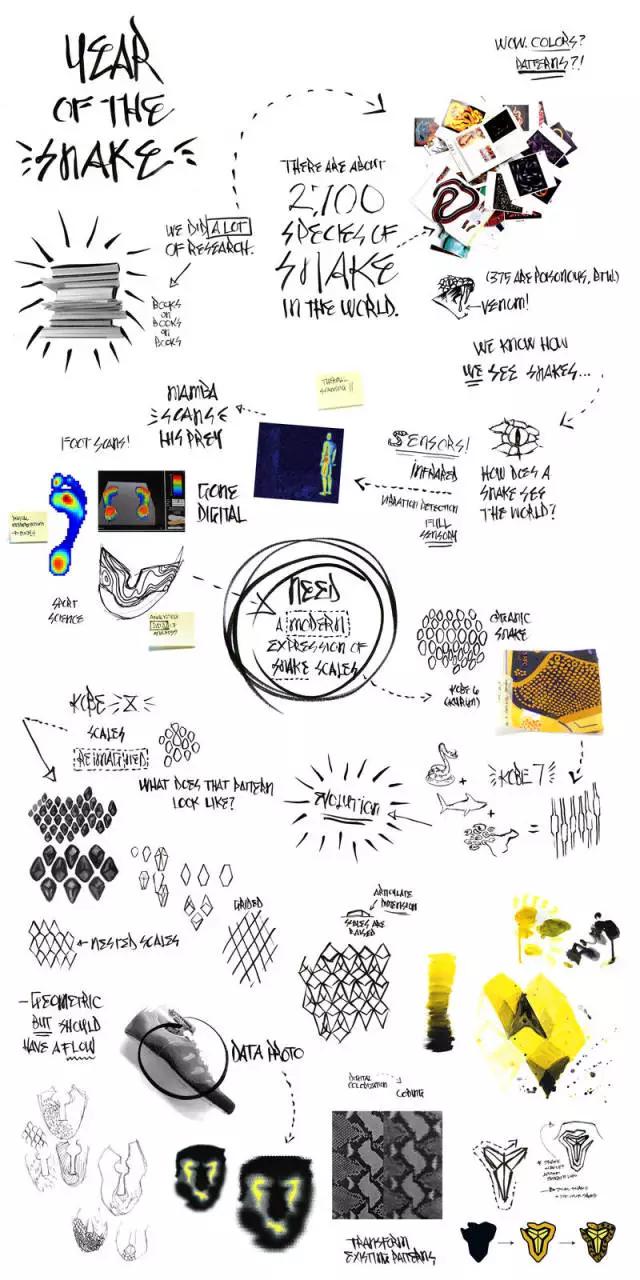 YEAR
OF THE
SNAKE
WOW. COLORS?
PATTERNS?!
WE DID A LOT
OF RESEARCH.
BOOKS
ON
BOOKS
ON
BOOKS
THERE ARE ABOUT
2,700
SPECIES OF
SNAKE
IN THE WORLD.
(375 ARE POISONOUS, BTW.)
VENOM!
WE KNOW HOW
WE SEE SNAKES...
HOW DOES A
SNAKE SEE
THE WORLD?
SENSORS!
INFRARED
VIBRATION DETECTION
FULL
SENSORY
THERMAL
MAMBA
SCANS
HIS PREY
FOOT SCANS!
GONE
DIGITAL
SPORT
SCIENCE
NEED
A MODERN
EXPRESSION OF
SNAKE SCALES
ORGANIC
SNAKE
KOBE 6
KOBE 7
+
+
=
EVOLUTION
KOBE 8
SCALES
REIMAGINED
WHAT DOES THAT PATTERN
LOOK LIKE?
GRIDED
NESTED SCALES
ARTICULATE
DIMENSION
SCALES ARE
RAISED
- GEOMETRIC
BUT SHOULD
HAVE A FLOW
DATA PHOTO
DIGITAL
TRANSFORM
EXISTING PATTERNS